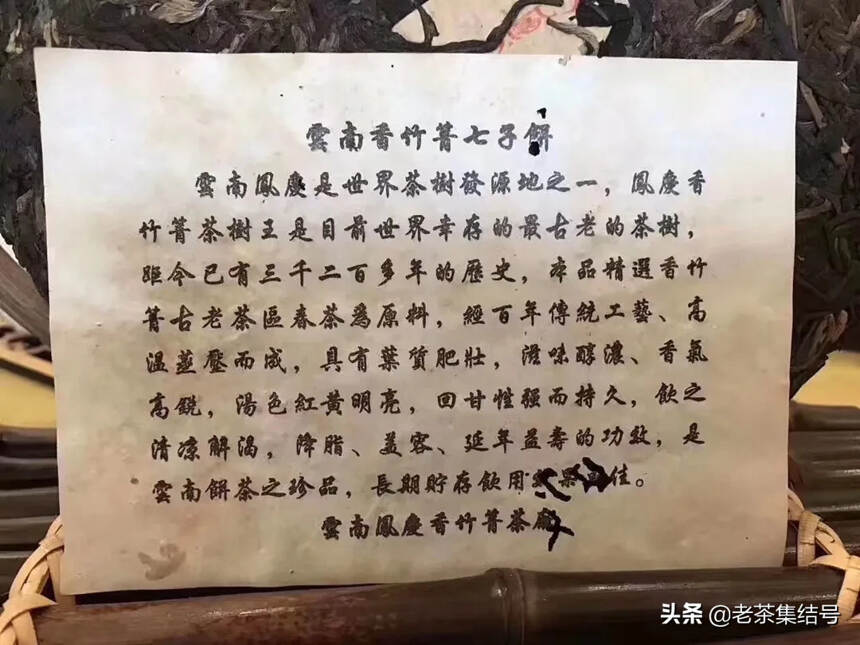 雲南香竹箐七子餅
雲南鳳慶是世界茶樹發源地之一，鳳慶香
竹箐茶樹王是目前世界幸存的最古老的茶樹，
距今已有三千二百多年的歷史，本品精選香竹
箐古老茶區春茶為原料，經百年傳統工藝、高
溫蒸壓而成，具有葉質肥壯，滋味醇濃、香氣
高銳，湯色紅黃明亮，回甘性強而持久，飲之
清凉解渴，降脂、美容、延年益壽的功效，是
雲南餅茶之珍品，長期貯存飲用果佳。
雲南鳳慶香竹箐茶廠
头条 @老茶集结号